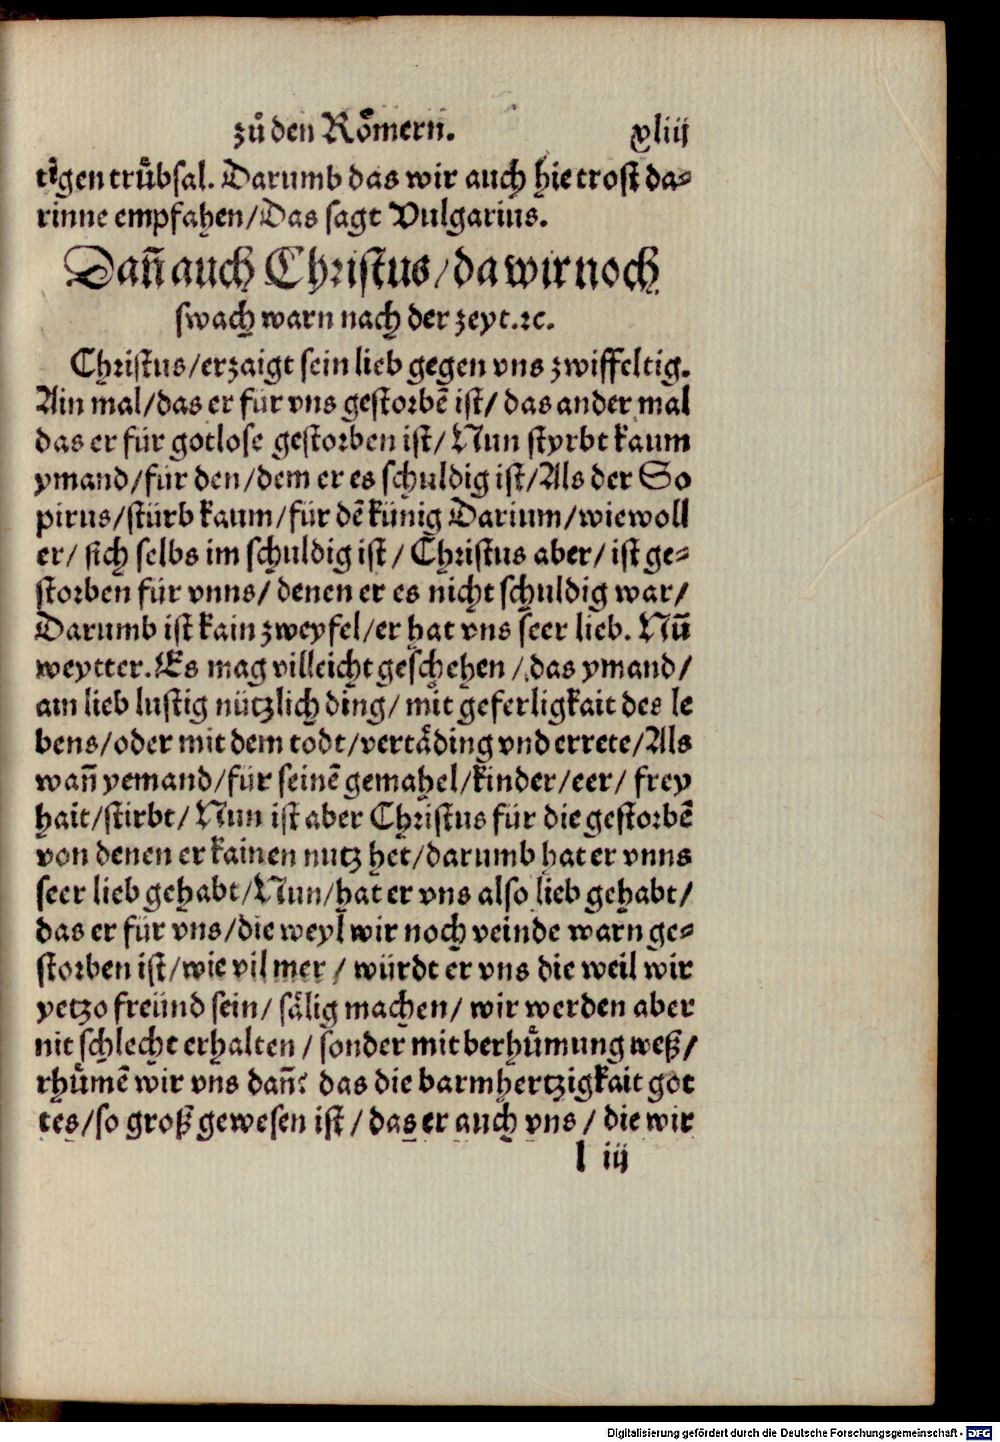 zů den Roͤmern. xliij
tigen truͤbsal. Darumb das wir auch hie trost da⸗
rinne empfahen/Das sagt Vulgarius.
Dañ auch Christus/da wir noch
swach warn nach der zeyt.ꝛc.
Christus/erzaigt sein lieb gegen vns zwiffeltig.
Ain mal/das er für vns gestorbē ist/ das ander mal
das er für gotlose gestorben ist/ Nun styrbt kaum
ymand/für den/dem er es schuldig ist/Als der So
pirus/stürb kaum/für dē künig Darium/wiewoll
er/ sich selbs im schuldig ist/ Christus aber/ ist ge⸗
storben für vnns/ denen er es nicht schuldig war/
Darumb ist kain zweyfel/er hat vns seer lieb. Nū
weytter. Es mag villeicht geschehen/ das ymand/
ain lieb lustig nützlich ding/ mit geferligkait des le
bens/oder mit dem todt/vertaͤding vnd errete/Als
wañ yemand/für seinē gemahel/kinder/eer/ frey
hait/stirbt/ Nun ist aber Christus für die gestorbē
von denen er kainen nutz het/darumb hat er vnns
seer lieb gehabt/Nun/hat er vns also lieb gehabt/
das er für vns/die weyl wir noch veinde warn ge⸗
storben ist/wie vil mer/ würdt er vns die weil wir
yetzo freünd sein/ saͤlig machen/ wir werden aber
nit schlecht erhalten/ sonder mit berhuͤmung weß/
rhuͤmē wir vns dañ? das die barmhertzigkait got
tes/so groß gewesen ist/das er auch vns/ die wir
l iij
Digitalisierung gefördert durch die Deutsche Forschungsgemeinschaft - DFG